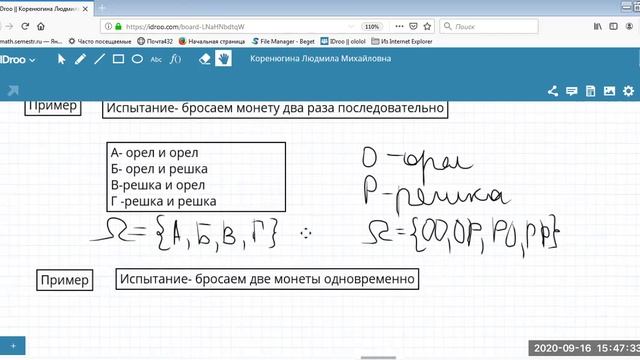 IDroo || Коренюгина Людмил
https://idroo.com/board-LNaHNbdtqW
110%
math.semestr.ru — Ян
Часто посещаемые
Почта432
Начальная страница
File Manager - Beget
IDroo || ololol
Из Internet Explorer
IDroo
Abc
f()
Коренюгина Людмила Михайловна
Пример
Испытание- бросаем монету два раза последовательно
А- орел и орел
Б- орел и решка
В-решка и орел
Г -решка и решка
О - орел
Р - решка
Ω = {А, Б, В, Г}
Ω = {ОО, ОР, РО, РР}
Пример
Испытание- бросаем две монеты одновременно
+
2020-09-16 15:47:33